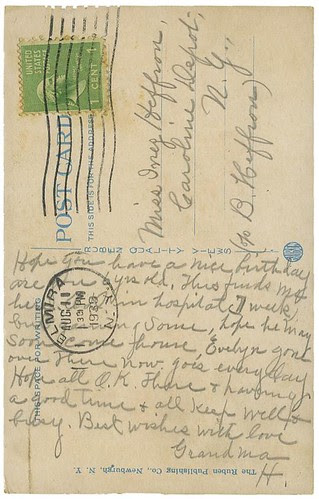 UNITED STATES
1 CENT 1
POST CARD
THIS SIDE IS FOR THE ADDRESS
Miss Inez Heffron,
Caroline Depot,
N. Y.,
c/o B. Heffron
RUBEN QUALITY VIEWS
THIS SPACE FOR WRITING
ELMIRA
AUG 11
PM
N.Y.
Hope you have a nice birthday
are you yrs old. This finds me
here in hospital 1 week,
but some, hope he may
soon come house, Evelyn gone
over there now goes every day
Hope all O.K. There & having
a good time & all keep well &
busy. Best wishes with love
Grandma
H.
The Ruben Publishing Co., Newburgh, N. Y.